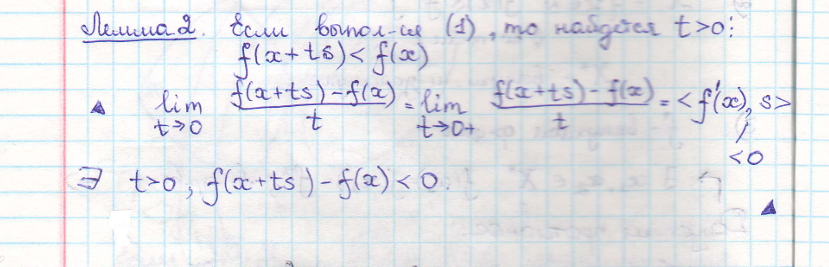 Лемма 2. Если выпол-ся (1), то найдется t>0:
f(x+ts) < f(x)
▲ lim t→0 (f(x+ts)-f(x))/t = lim t→0+ (f(x+ts)-f(x))/t = <f'(x), s>
<0
∃ t>0, f(x+ts)-f(x)<0.
▲